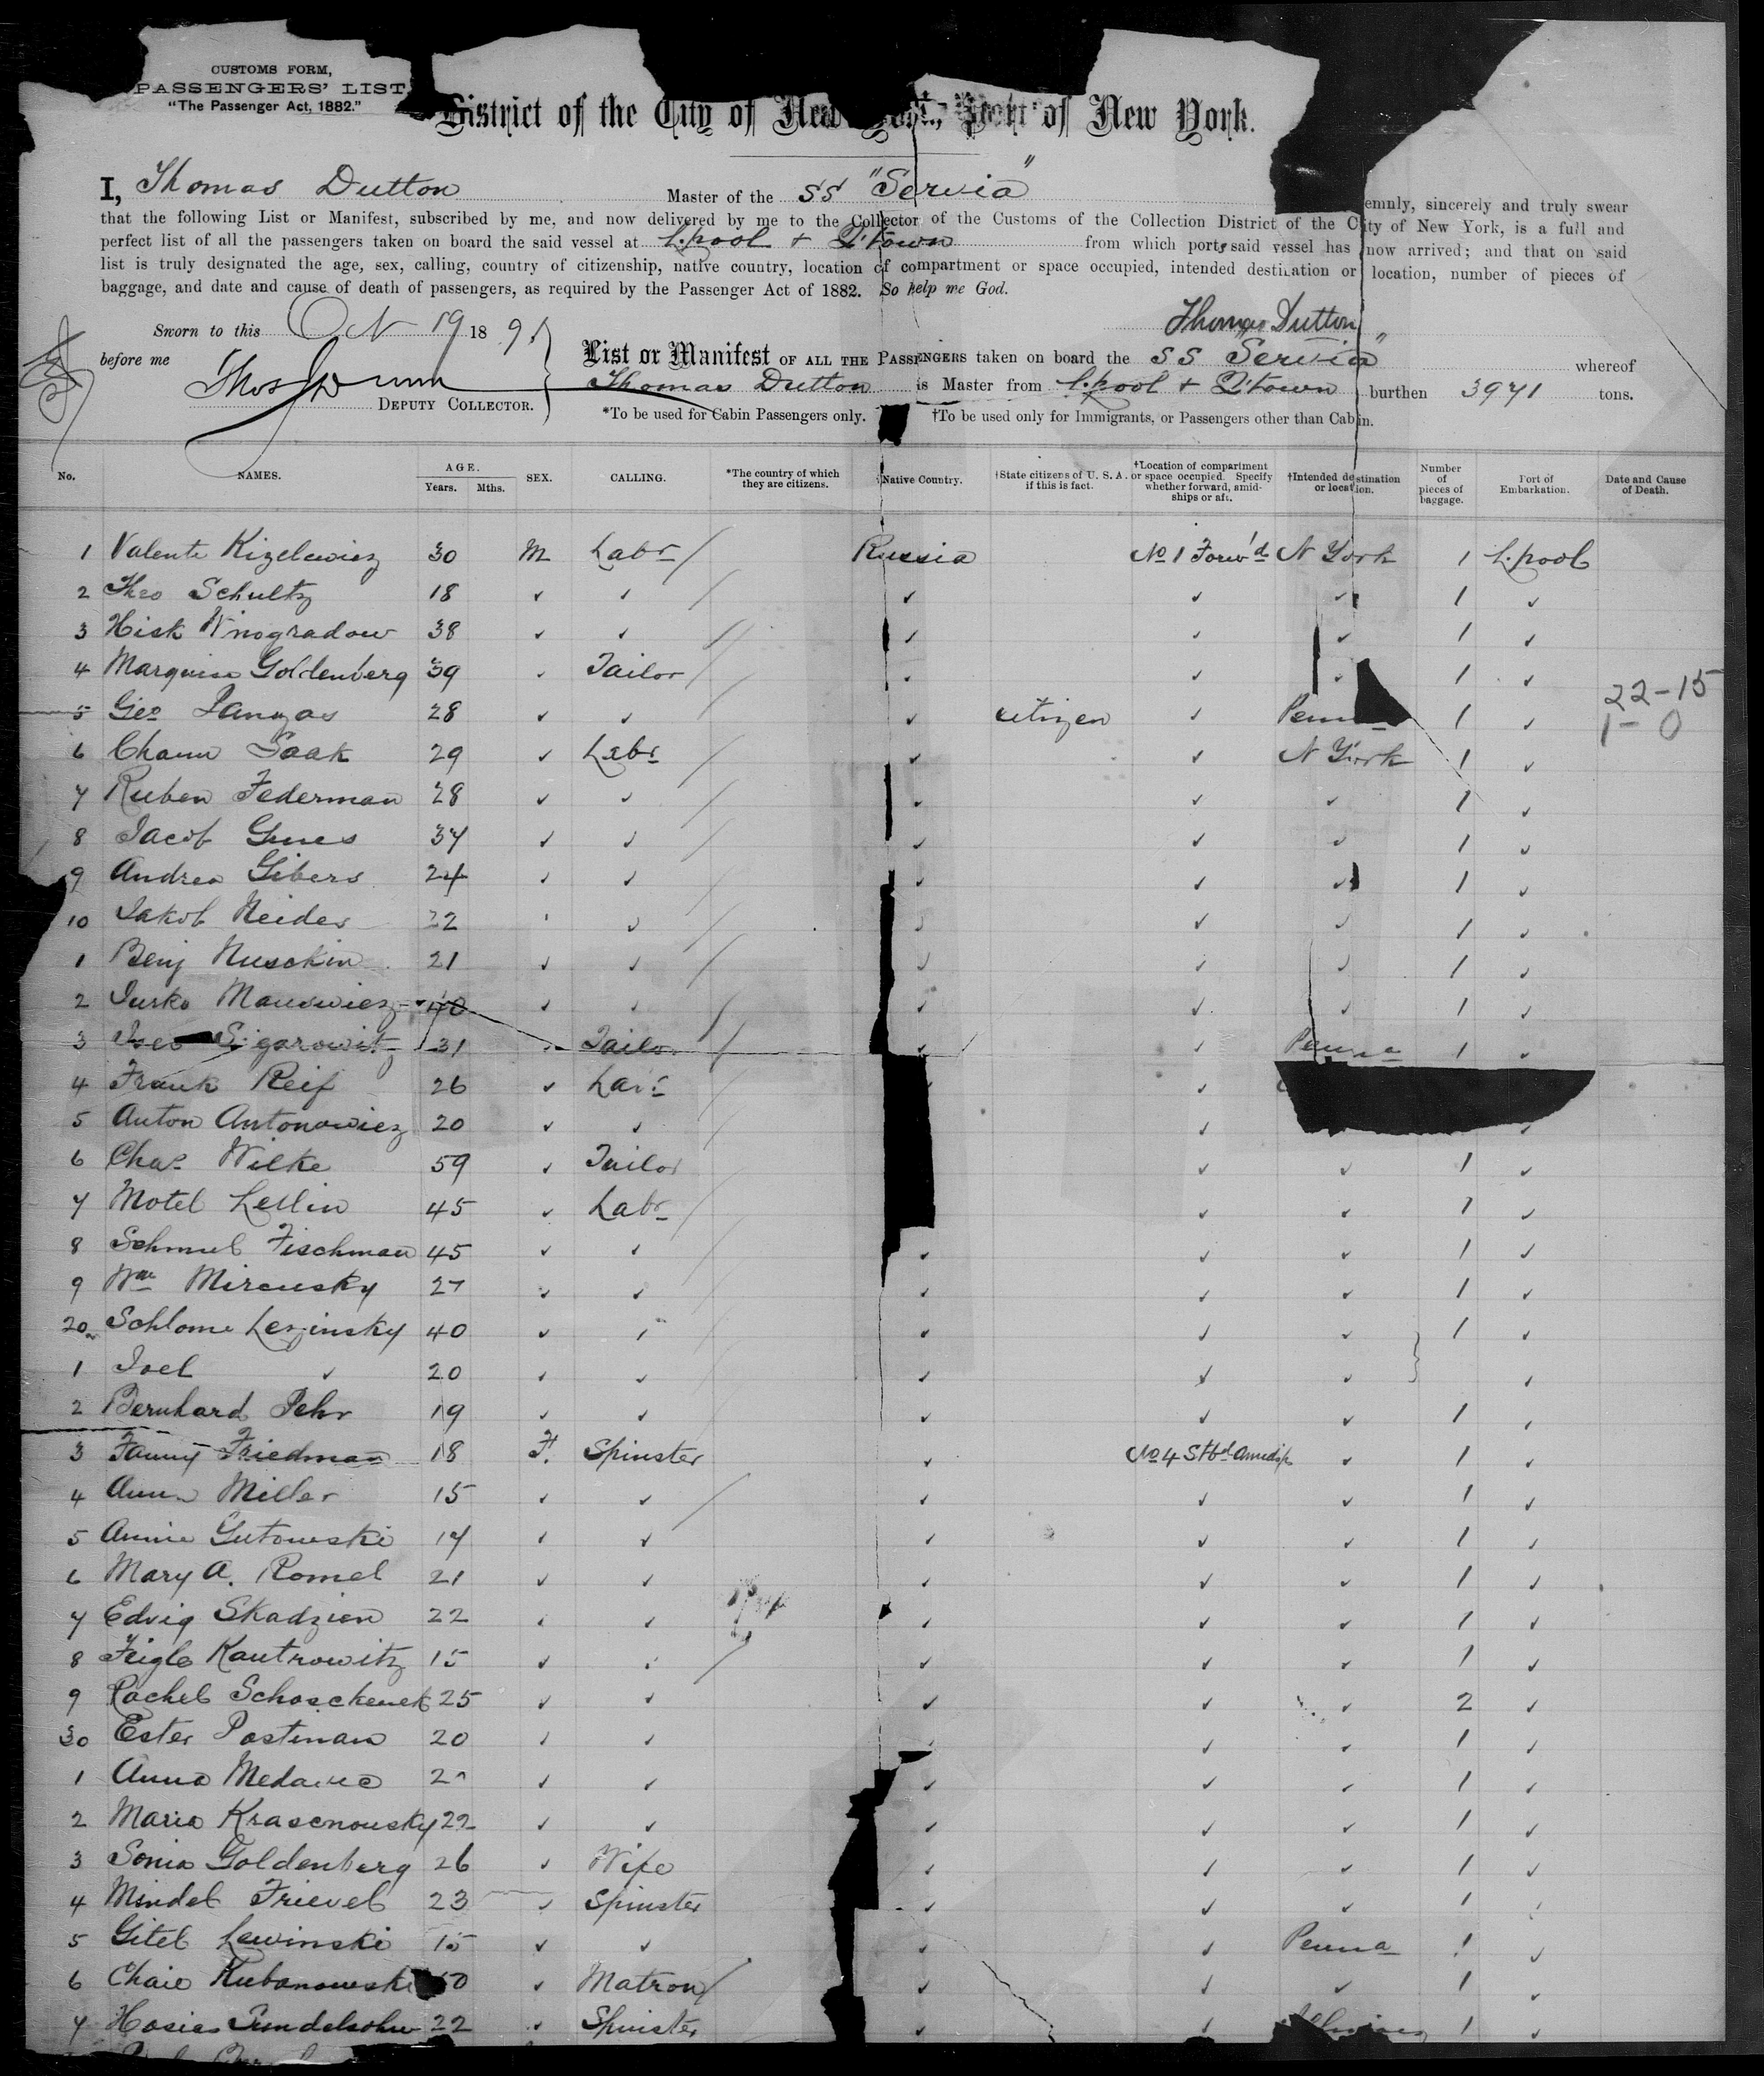 CUSTOMS FORM,
PASSENGERS' LIST
"The Passenger Act, 1882."
District of the City of New York, Port of New York.
I, Thomas Dutton Master of the SS "Servia" emnly, sincerely and truly swear
that the following List or Manifest, subscribed by me, and now delivered by me to the Collector of the Customs of the Collection District of the City of New York, is a full and
perfect list of all the passengers taken on board the said vessel at L.pool + Q'town from which port, said vessel has now arrived; and that on said
list is truly designated the age, sex, calling, country of citizenship, native country, location of compartment or space occupied, intended destination or location, number of pieces of
baggage, and date and cause of death of passengers, as required by the Passenger Act of 1882. So help me God.
Thomas Dutton
Sworn to this Oct 19 1891
before me Thos Dunn
DEPUTY COLLECTOR.
List or Manifest OF ALL THE PASSENGERS taken on board the SS Servia whereof
Thomas Dutton is Master from L.pool + Q'town burthen 3971 tons.
*To be used for Cabin Passengers only. †To be used only for Immigrants, or Passengers other than Cabin.
No. NAMES. AGE. Years. Mths. SEX. CALLING. *The country of which they are citizens. Native Country. †State citizens of U. S. A. if this is fact. †Location of compartment or space occupied. Specify whether forward, amidships or aft. †Intended destination or location. Number of pieces of baggage. Port of Embarkation. Date and Cause of Death.
1 Valente Kizelewicz 30 M Labr Russia No 1 Forw'd N York 1 L.pool
2 Theo Schultz 18 ✓ ✓ ✓ ✓ ✓ 1 ✓
3 Hisk Winogradow 38 ✓ ✓ ✓ ✓ ✓ 1 ✓
4 Marquise Goldenberg 39 ✓ Tailor ✓ ✓ ✓ 1 ✓
22-15
5 Geo 28 ✓ ✓ ✓ citizen ✓ Penna 1 ✓ 1-0
6 29 ✓ Labr ✓ ✓ N York 1 ✓
7 Ruben Federman 28 ✓ ✓ ✓ ✓ ✓ 1 ✓
8 Jacob 37 ✓ ✓ ✓ ✓ ✓ 1 ✓
9 Andrea Gibers 24 ✓ ✓ ✓ ✓ ✓ 1 ✓
10 Jakob Neider 22 ✓ ✓ ✓ ✓ ✓ 1 ✓
1 Benj Nusckin 21 ✓ ✓ ✓ ✓ ✓ 1 ✓
2 Jurko Manowicz 40 ✓ ✓ ✓ ✓ ✓ 1 ✓
3 Sigarowitz 31 ✓ Tailor ✓ ✓ Penna 1 ✓
4 Frank Reif 26 ✓ Labr ✓
5 Anton Antonowicz 20 ✓ ✓ ✓ ✓
6 Chas Wilke 59 ✓ Tailor ✓ ✓ 1 ✓
7 Motel 45 ✓ Labr ✓ ✓ 1 ✓
8 Schmul Fischman 45 ✓ ✓ ✓ ✓ ✓ 1 ✓
9 Wm Mirensky 27 ✓ ✓ ✓ ✓ ✓ 1 ✓
20 Schlome Lezinsky 40 ✓ ✓ ✓ ✓ ✓ 1 ✓
1 Joel ✓ 20 ✓ ✓ ✓ ✓ ✓ ✓
2 Bernhard Pehr 19 ✓ ✓ ✓ ✓ ✓ 1 ✓
3 Fanny Friedman 18 F. Spinster ✓ No 4 Stbd Amidsps ✓ 1 ✓
4 Anna Miller 15 ✓ ✓ ✓ ✓ ✓ 1 ✓
5 Annie Gutowski 17 ✓ ✓ ✓ ✓ ✓ 1 ✓
6 Mary A. Romel 21 ✓ ✓ ✓ ✓ ✓ 1 ✓
7 Edvig Skadzien 22 ✓ ✓ ✓ ✓ ✓ 1 ✓
8 Feigle Kantrowitz 15 ✓ ✓ ✓ ✓ ✓ 1 ✓
9 Rachel Schoschenek 25 ✓ ✓ ✓ ✓ ✓ 2 ✓
30 Ester Postman 20 ✓ ✓ ✓ ✓ ✓ 1 ✓
1 Anna ✓ ✓ ✓ ✓ ✓ 1 ✓
2 Maria Krasenowsky 22 ✓ ✓ ✓ ✓ ✓ 1 ✓
3 Sonia Goldenberg 26 ✓ Wife ✓ ✓ ✓ 1 ✓
4 Mindel Frievel 23 ✓ Spinster ✓ ✓ ✓ 1 ✓
5 Gitel Lewinski 15 ✓ ✓ ✓ ✓ Penna 1 ✓
6 Chaie Kubanowski 50 ✓ Matron ✓ ✓ ✓ 1 ✓
7 Hosias Sundelsohn 22 ✓ Spinster ✓ ✓ 1 ✓